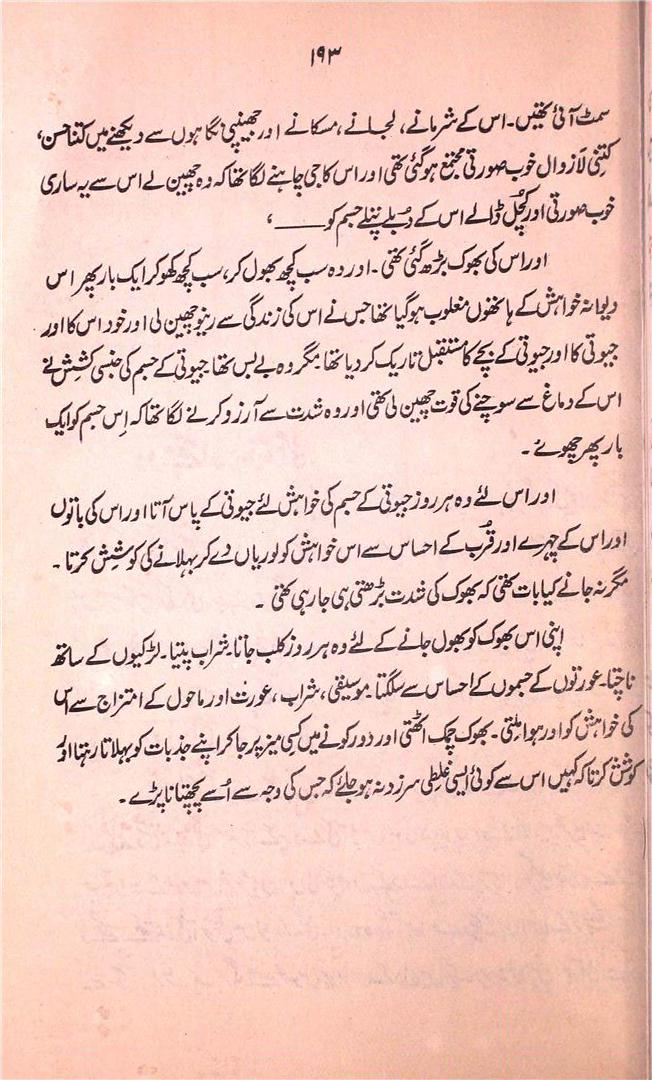 ۱۹۳
سمٹ آئی تھیں۔ اس کے شرمانے، لجانے، مسکانے اور جھینپی نگاہوں سے دیکھنے میں کتنا حسن،
کتنی لازوال خوب صورتی مجتمع ہوگئی تھی اور اس کا جی چاہنے لگا تھا کہ وہ چھین لے اس سے یہ ساری
خوب صورتی اور کچل ڈالے اس کے دُبلے پتلے جسم کو ــــــ ،
اور اس کی بھوک بڑھ گئی تھی۔ اور وہ سب کچھ بھول کر، سب کچھ کھو کر ایک بار پھر اس
دیوانہ خواہش کے ہاتھوں مغلوب ہوگیا تھا جس نے اس کی زندگی سے رینو چھین لی اور خود اس کا اور
جیوتی کا اور جیوتی کے بچے کا مستقبل تاریک کر دیا تھا۔ مگر وہ بے بس تھا۔ جیوتی کے جسم کی جنسی کشش نے
اس کے دماغ سے سوچنے کی قوت چھین لی تھی اور وہ شدت سے آرزو کرنے لگا تھا کہ اِس جسم کو ایک
بار پھر چھوئے۔
اور اس لئے وہ ہر روز جیوتی کے جسم کی خواہش لئے جیوتی کے پاس آتا اور اس کی باتوں
اور اس کے چہرے اور قُرب کے احساس سے اس خواہش کو لوریاں دے کر بہلانے کی کوشش کرتا۔
مگر نہ جانے کیا بات تھی کہ بھوک کی شدت بڑھتی ہی جا رہی تھی۔
اپنی اس بھوک کو بھول جانے کے لئے وہ ہر روز کلب جاتا۔ شراب پیتا۔ لڑکیوں کے ساتھ
ناچتا۔ عورتوں کے جسموں کے احساس سے سلگتا۔ موسیقی، شراب، عورت اور ماحول کے امتزاج سے اس
کی خواہش کو اور ہوا ملتی۔ بھوک چمک اٹھتی اور دور کونے میں کسی میز پر جا کر اپنے جذبات کو بہلاتا رہتا اور
کوشش کرتا کہ کہیں اس سے کوئی ایسی غلطی سرزد نہ ہو جائے کہ جس کی وجہ سے اُسے پچھتانا پڑے۔